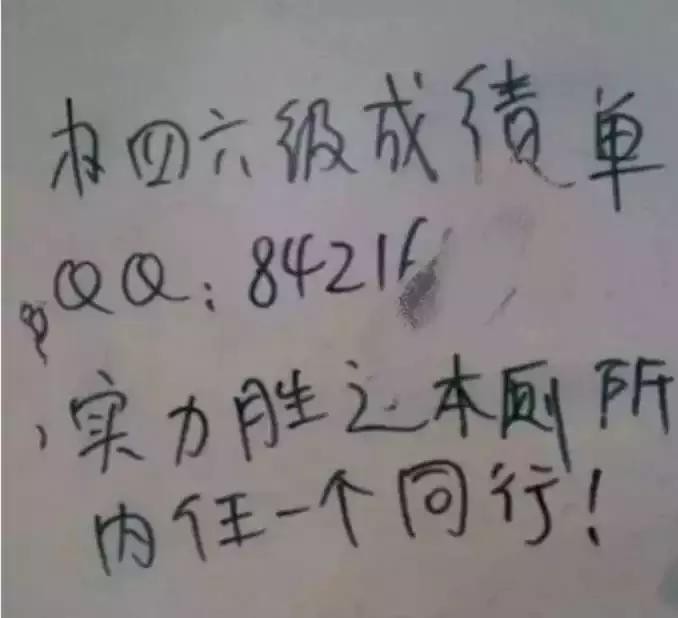 四六级成绩单
QQ：8421
实力胜过本厕所
内任一个同行！